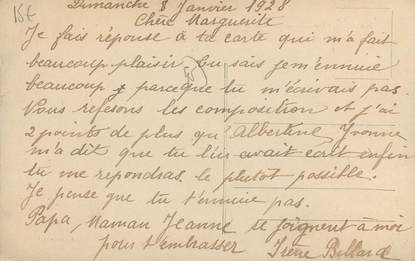 Dimanche 8 Janvier 1928
Chère Marguerite
Je fais réponse à ta carte qui m'a fait
beaucoup plaisir tu sais je m'ennuie
beaucoup parceque tu m'écrivais pas.
Nous refesons les composition et j'ai
2 points de plus qu'Albertine, Yvonne
m'a dit que tu lui avait écrit enfin
tu me repondras le plutot possible.
Je pense que tu t'ennuie pas.
Papa, Maman Jeanne se joignent à moi
pour t'embrasser Irène Billard